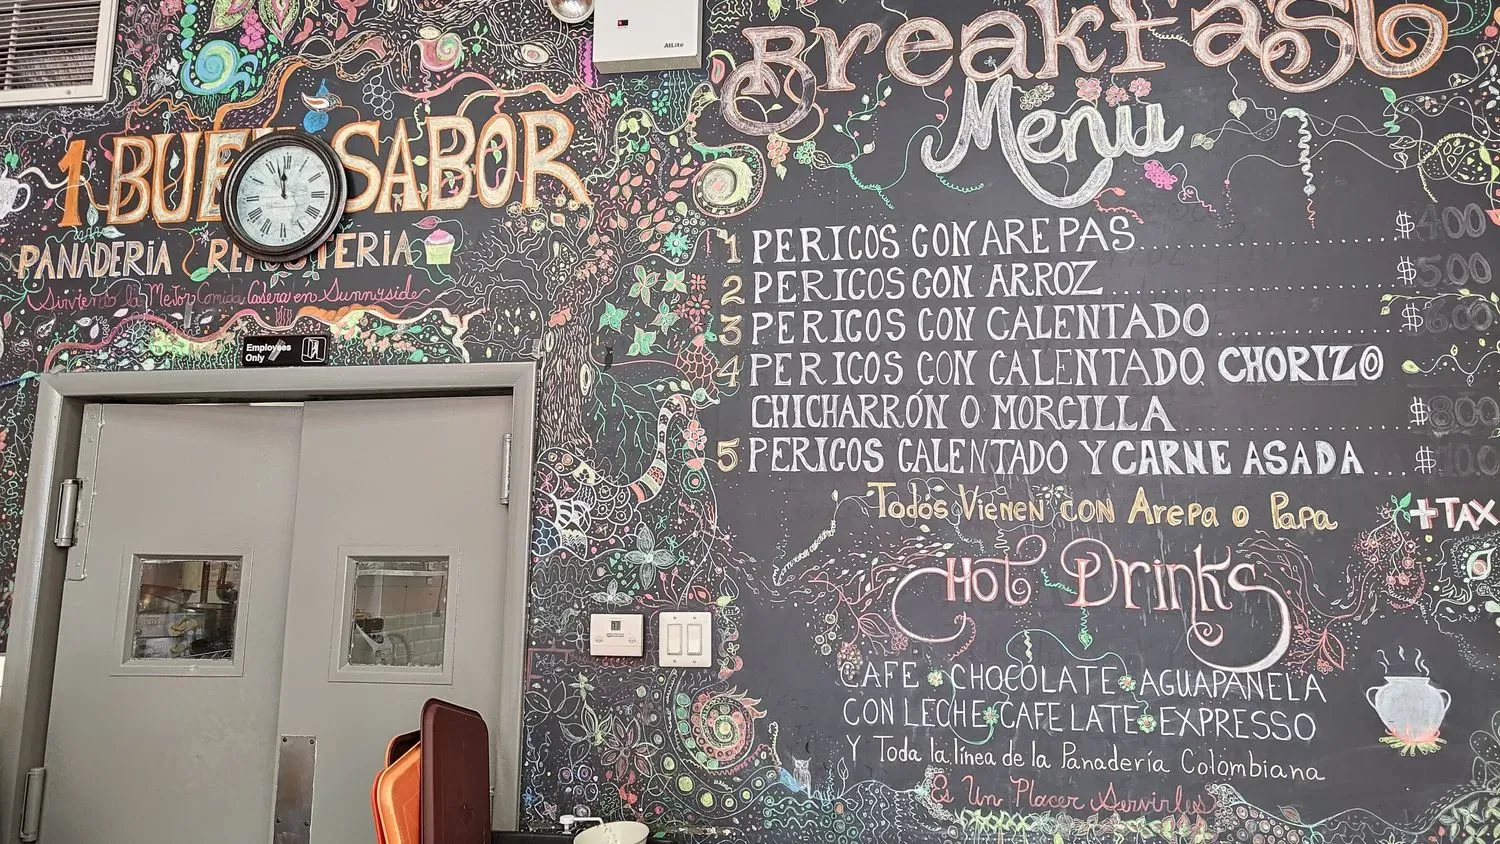 AtLite
1 BUEN SABOR
PANADERIA REPOSTERIA
Sirviendo la Mejor Comida Casera en Sunnyside
Employees
Only
Breakfast
Menu
1 PERICOS CON AREPAS $400
2 PERICOS CON ARROZ $500
3 PERICOS CON CALENTADO $6.00
4 PERICOS CON CALENTADO CHORIZO
CHICHARRÓN O MORCILLA $800
5 PERICOS CALENTADO Y CARNE ASADA... $
Todos Vienen con Arepa o Papa
+TAX
Hot Drinks
CAFE CHOCOLATE AGUAPANELA
CON LECHE CAFE LATE EXPRESSO
Y Toda la línea de la Panadería Colombiana
Es Un Placer Servirles